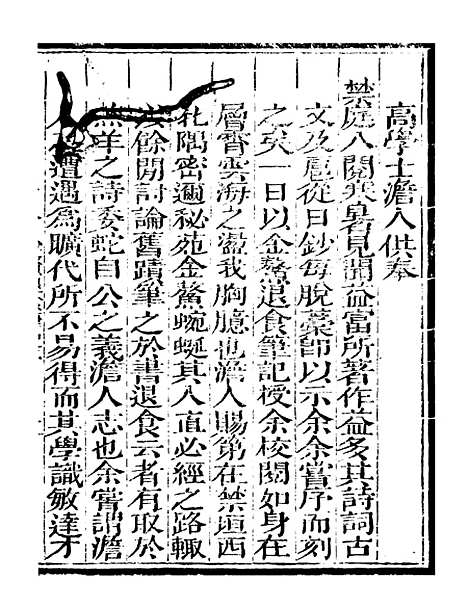 高學士澹人供奉
禁庭八閱寒暑見聞益富所著作益多其詩詞古
文及扈從日鈔每脫藁卽以示余余嘗序而刻
之矣一日以金鰲退食筆記授余校閱如身在
層霄雲海之盪我胸臆也澹人賜第在禁垣西
北隅密邇秘苑金鰲蜿蜒其入直必經之路輙
餘閒討論舊蹟筆之於書退食云者有取於
羔羊之詩委蛇自公之義澹人志也余嘗謂澹
人遭遇爲曠代所不易得而其學識敏達才